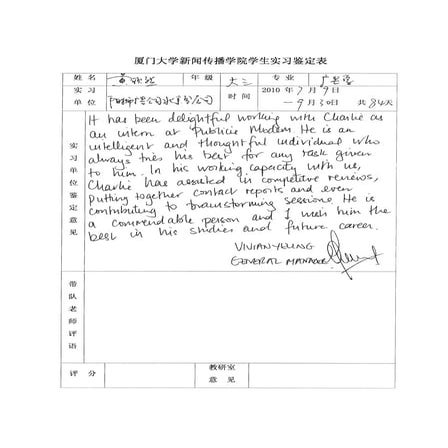 厦门大学新闻传播学院学生实习鉴定表
姓名 年级 大三 专业 广告学
实习单位 广告公司 分公司 时间 2010年7月9日
—9月30日 共84天
实习单位鉴定意见
It has been delightful working with Charlie as
an intern at Publicis Modem. He is an
intelligent and thoughtful individual who
always tries his best for any task given
to him. In his working capacity with us,
Charlie has assisted in competitive reviews,
putting together contact reports and even
contributing to brainstorming sessions. He is
a commendable person and I wish him the
best in his studies and future career.
VIVIAN YEUNG
GENERAL MANAGER
带队老师评语
评分 教研室意见